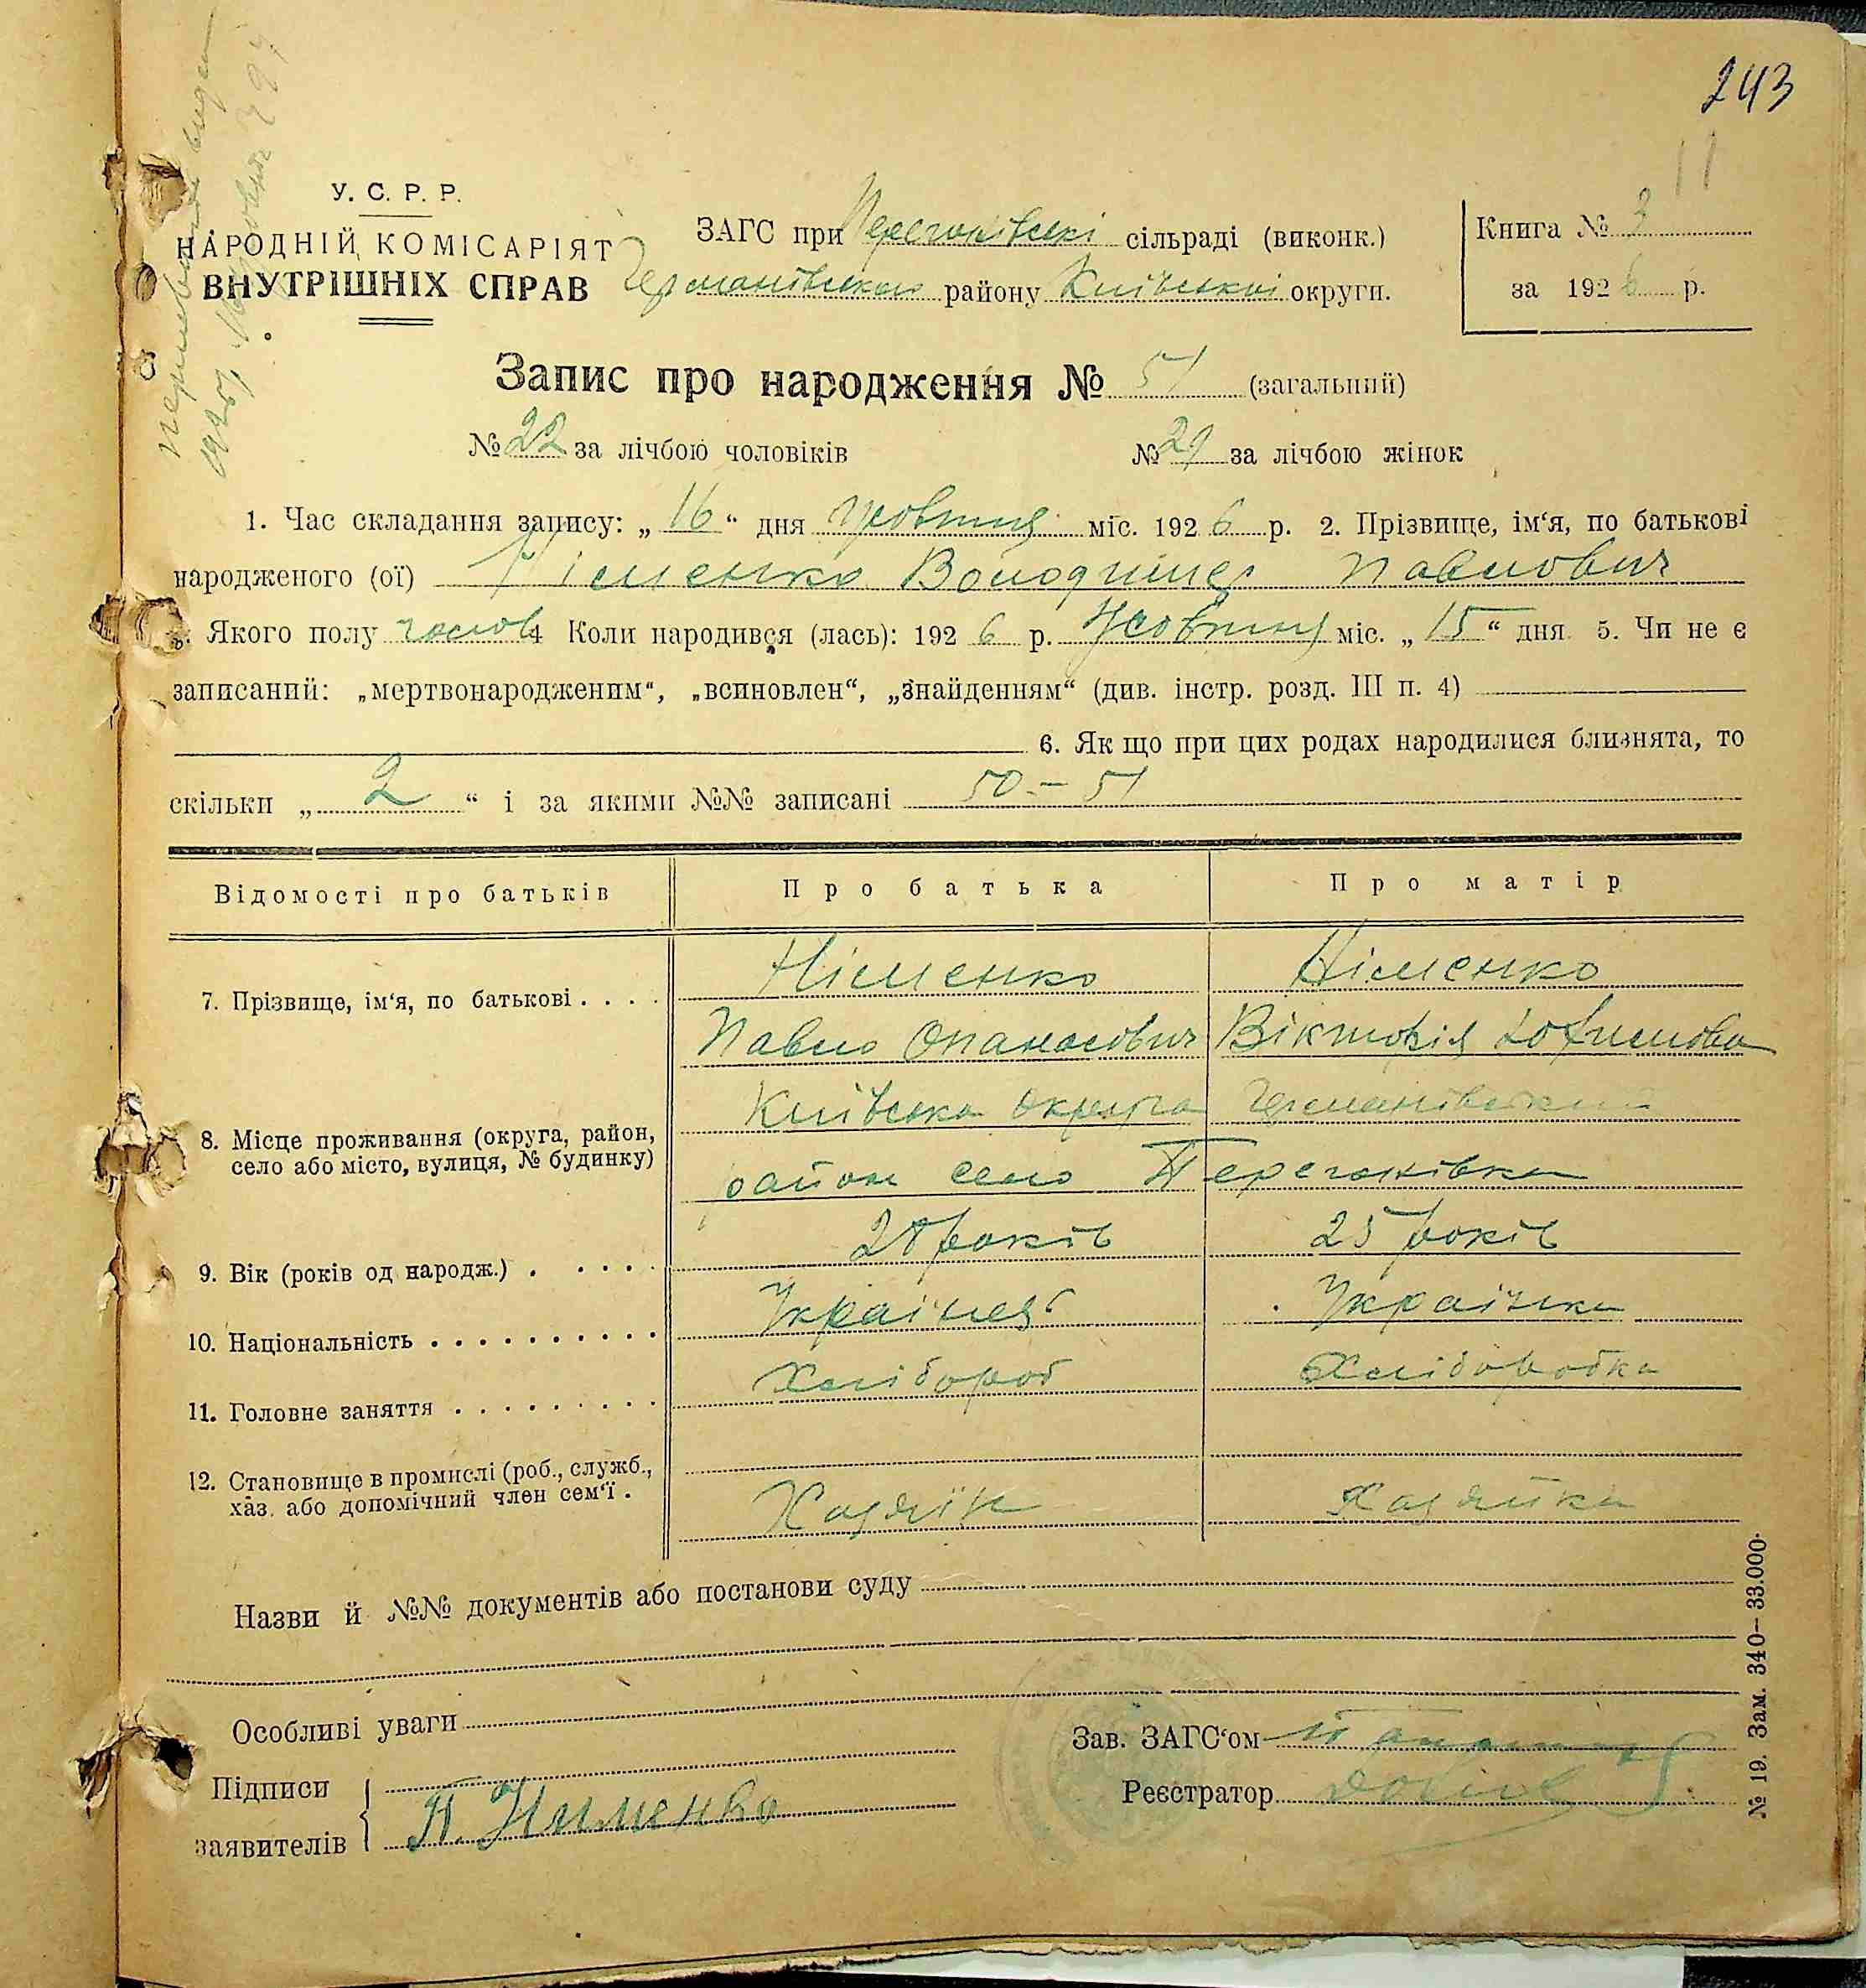 243
11
У. С. Р. Р.
НАРОДНІЙ КОМІСАРІЯТ
ВНУТРІШНІХ СПРАВ
ЗАГС при Перегонівські сільраді (виконк.)
Германівського району Київської округи.
Книга № 3
за 1926 р.
Запис про народження № 51 (загальний)
№ 22 за лічбою чоловіків № 29 за лічбою жінок
1. Час складання запису: „16“ дня жовтня міс. 1926 р. 2. Прізвище, ім‘я, по батькові
народженого (ої) Німенко Володимер Павлович
3. Якого полу чолов 4 Коли народився (лась): 1926 р. Жовтня міс. „15“ дня 5. Чи не є
записаний: „мертвонародженим“, „всиновлен“, „знайденням“ (див. інстр. розд. III п. 4)
6. Як що при цих родах народилися близнята, то
скільки „2“ і за якими №№ записані 50 - 51
Відомості про батьків Про батька Про матір
7. Прізвище, ім‘я, по батькові . . . . Німенко Німенко
Павло Опанасович Вікторія Юхимова
8. Місце проживання (округа, район, село або місто, вулиця, № будинку) Київська округа Германівський
район село Перегонівка
9. Вік (років од народж.) . . . . . 28 років 25 років
10. Національність . . . . . . . . . . Українець Українка
11. Головне заняття . . . . . . . . . Хлібороб Хліборобка
12. Становище в промислі (роб., служб., хаз. або допомічний член сем‘ї . Хазяїн Хазяйка
Назви й №№ документів або постанови суду
Особливі уваги
Зав. ЗАГС‘ом
Підписи
заявителів П. Нименко
Реєстратор
№ 19. Зам. 340—33.000.